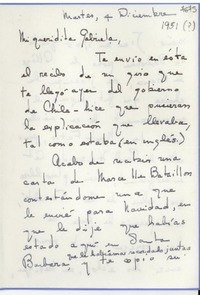 Martes, 4 Diciembre
1951 (?)
Mi queridita Gabriela,
Te envío en ésta
el recibo de un giro que
te llegó ayer del gobierno
de Chile – hice que pusieran
la explicación que llevaba,
tal como estaba (en inglés.)
Acabo de recibir una
carta de Marcelle Bataillon
contestándome una que
le envié para Navidad, en
que le dije que habías
estado aquí en Santa
Barbara, y
que la habíamos recordado juntas